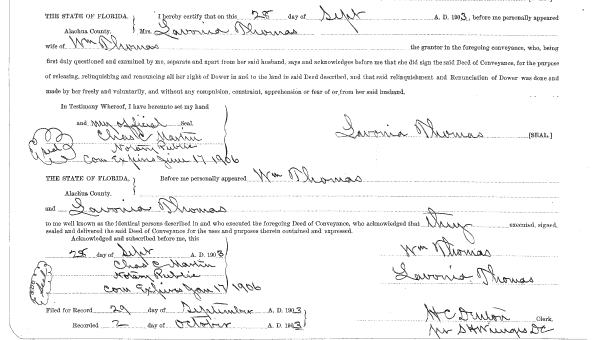 THE STATE OF FLORIDA, I hereby certify that on this 28 day of Sept A. D. 1903, before me personally appeared
Alachua County. Mrs. Lavonia Thomas
wife of Wm Thomas the grantor in the foregoing conveyance, who, being
first duly questioned and examined by me, separate and apart from her said husband, says and acknowledges before me that she did sign the said Deed of Conveyance, for the purpose
of releasing, relinquishing and renouncing all her right of Dower in and to the land in said Deed described, and that said relinquishment and Renunciation of Dower was done and
made by her freely and voluntarily, and without any compulsion, constraint, apprehension or fear of or from her said husband.
In Testimony Whereof, I have hereunto set my hand
and my official Seal
Chas C Martin
Notary Public
Com Expires June 17 1906
Lavonia Thomas [SEAL.]
THE STATE OF FLORIDA, Before me personally appeared Wm Thomas
Alachua County.
and Lavonia Thomas
to me well known as the identical persons described in and who executed the foregoing Deed of Conveyance, who acknowledged that they executed, signed,
sealed and delivered the said Deed of Conveyance for the uses and purposes therein contained and expressed.
Acknowledged and subscribed before me, this
28 day of Sept A. D. 1903
Chas C Martin
Notary Public
Com Expires Jan 17 1906
Wm Thomas
Lavonia Thomas
Filed for Record 29 day of September A. D. 1903
Recorded 2 day of October A. D. 1903
H C Denton Clerk.
per D C